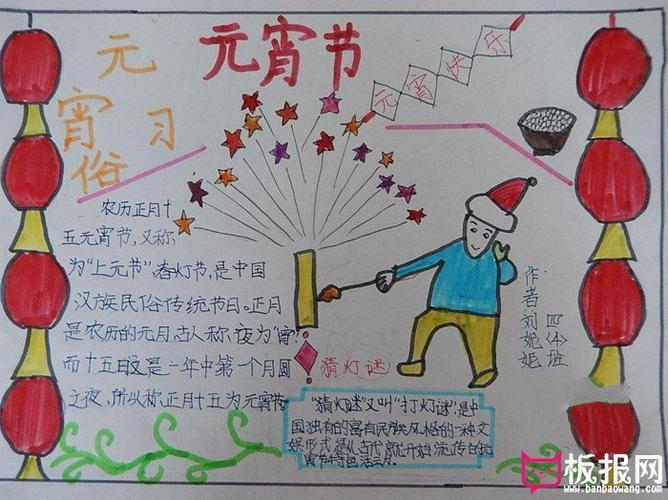 元宵节
元宵快乐
元
宵习
俗
农历正月十
五元宵节,又称
为“上元节”,春灯节,是中国
汉族民俗传统节日。正月
是农历的元月,古人称夜为“宵”
而十五日又是一年中第一个月圆
之夜,所以称正月十五为元宵节
作者刘妮妮
四〈4〉班
猜灯谜
“猜灯谜”又叫“打灯谜”,是中
国独有的富有民族风格的一种文
娱形式是从古代就开始流传的元
宵节特色活动。
板报网
www.banbaowang.com